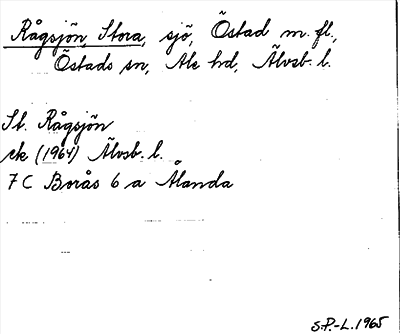 Rågsjön, Stora, sjö, Östad m.fl.,
Östads sn, Ale hd, Älvsb. l.
St. Rågsjön
ek (1964) Älvsb. l.
7 C Borås 6 a Ålanda
S.P.-L. 1965